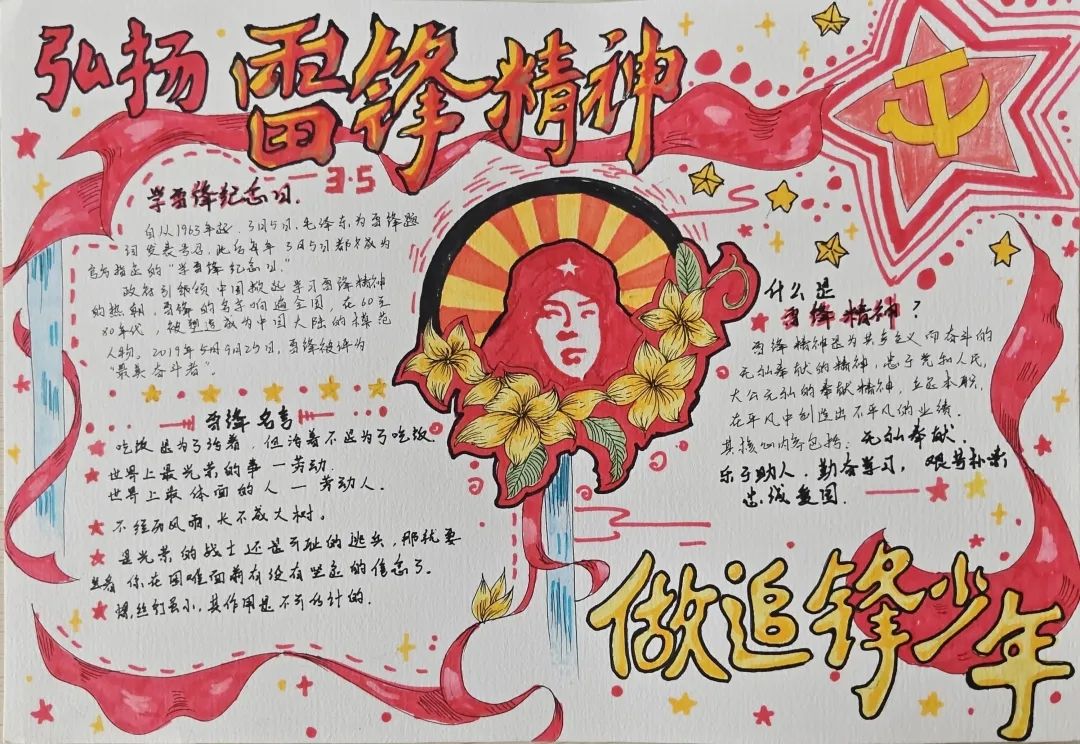 弘扬雷锋精神
3.5
学雷锋纪念日.
自从1963年起,3月5日,毛泽东为雷锋题
词发表号召,此后每年3月5日都成为
官方指定的“学雷锋纪念日.”
政府引领中国掀起学习雷锋精神
的热潮,雷锋的名字响遍全国,在60至
80年代,被塑造成为中国大陆的模范
人物。2019年5月9月25日,雷锋被评为
“最美奋斗者”。
雷锋名言
吃饭是为了活着,但活着不是为了吃饭.
世界上最光荣的事一劳动.
世界上最体面的人一劳动人.
不经历风雨,长不成大树。
是光荣的战士还是可耻的逃兵,那就要
看你在困难面前有没有坚定的信念了。
螺丝钉虽小,其作用是不可估计的.
什么是
雷锋精神?
雷锋精神是为共产主义而奋斗的
无私奉献的精神,忠于党和人民,
大公无私的奉献精神,立足本职,
在平凡中创造出不平凡的业绩.
其核心内容包括:无私奉献.
乐于助人.勤奋学习,艰苦朴素
忠诚爱国.
做追锋少年